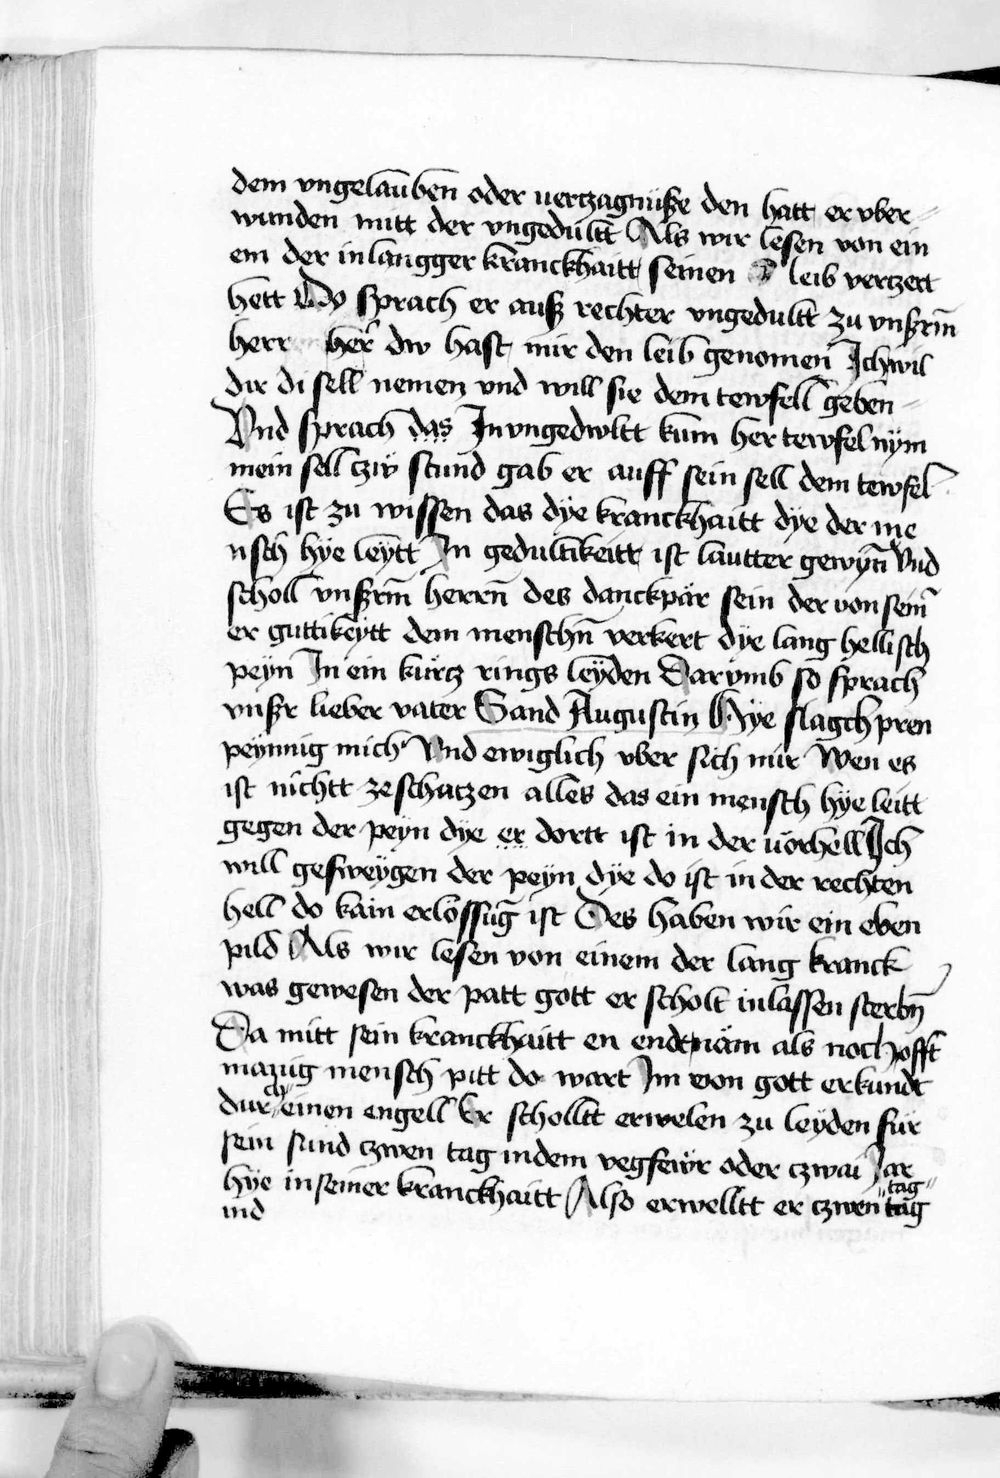 dem vngelauben oder uertzagnüße den hatt er vber
wunden mitt der vngedultt Als wir lesen von ein
em der in langger kranckhaitt seinen leib vertzett
hett Do sprach er auß rechter vngedultt zu vnßrm̄
herr her̄ dw hast mir den leib genomen Ich wil
dir di sell nemen vnd will sie dem tewfell geben
Vnd sprach das In vngedwltt kum her tewfel nÿm
mein sell czw̋ stund gab er auff sein sell dem tewfel
Es ist zu wissen das dÿe kranckhaitt dÿe der me
nsch hÿe leÿtt In gedultikeitt ist lautter gewyn̄ Vnd
scholl vnßrm̄ herrn̄ des danckpär sein der von sein̄
er guttikeÿtt dem menschn̄ verkert dÿe lang hellisch
peyn In ein kürtz rings leÿden Darümb so sprach
vnßr lieber vater Sand Augustin Hÿe slagch pren
peÿnnig mich Vnd ewiglich vber sich mir Wen es
ist nichtt ze schatzen alles das ein mensch hÿe leitt
gegen der peyn dÿe er dortt ist in der vorhell Ich
will gesweÿgen der peyn dÿe do ist in der rechten
hell do kain erlössuḡ ist Des haben wir ein eben
pild Als wir lesen von einem der lang kranck
was gewesen der patt gott er scholt in lassen sterbn̄
Da mitt sein kranckhaitt en endt näm als noch offt
manig mensch pitt do wart Im von gott erkundt
durch einen engell Er scholltt erwelen zu leÿden für
sein sund czwen tag in dem vegfewr oder czwai Jar
hÿe in seiner kranckhaitt Also erwelltt er czwen tag
ind